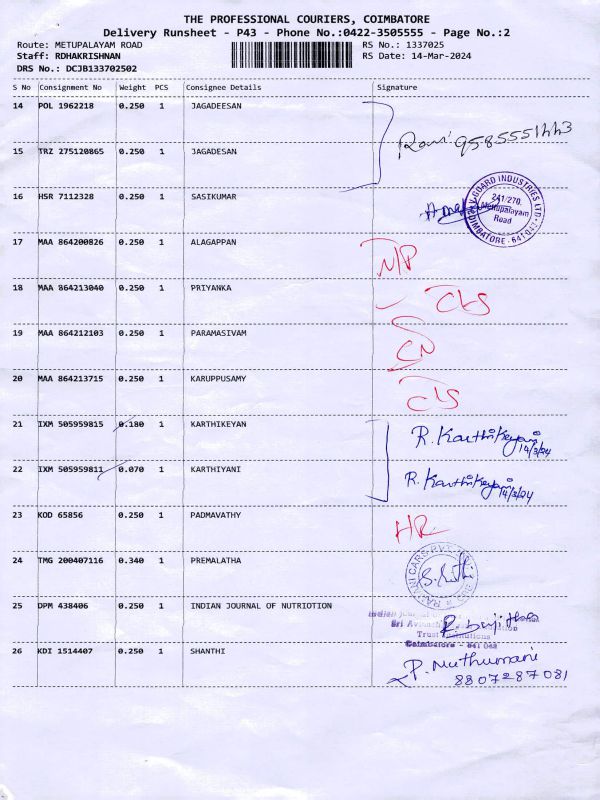 THE PROFESSIONAL COURIERS, COIMBATORE
Delivery Runsheet - P43 - Phone No.:0422-3505555 - Page No.:2
Route: METUPALAYAM ROAD RS No.: 1337025
Staff: RDHAKRISHNAN RS Date: 14-Mar-2024
DRS No.: DCJB133702502
S No Consignment No Weight PCS Consignee Details Signature
14 POL 1962218 0.250 1 JAGADEESAN
Ravi 9585551443
15 TRZ 275120865 0.250 1 JAGADESAN
16 HSR 7112328 0.250 1 SASIKUMAR
V-GUARD INDUSTRIES LTD
241/270,
Mettupalayam
Road
COIMBATORE - 641 043
17 MAA 864200826 0.250 1 ALAGAPPAN
N/P
18 MAA 864213040 0.250 1 PRIYANKA CLS
19 MAA 864212103 0.250 1 PARAMASIVAM
CN
20 MAA 864213715 0.250 1 KARUPPUSAMY CLS
21 IXM 505959815 0.180 1 KARTHIKEYAN R. Karthikeyani
14/3/24
22 IXM 505959811 0.070 1 KARTHIYANI R. Karthikeyani
14/3/24
23 KOD 65856 0.250 1 PADMAVATHY HR
24 TMG 200407116 0.340 1 PREMALATHA
25 DPM 438406 0.250 1 INDIAN JOURNAL OF NUTRIOTION
Indian Journal
Sri
Trust Institutions
Coimbatore - 641 043
26 KDI 1514407 0.250 1 SHANTHI P. Muthumani
8807287081